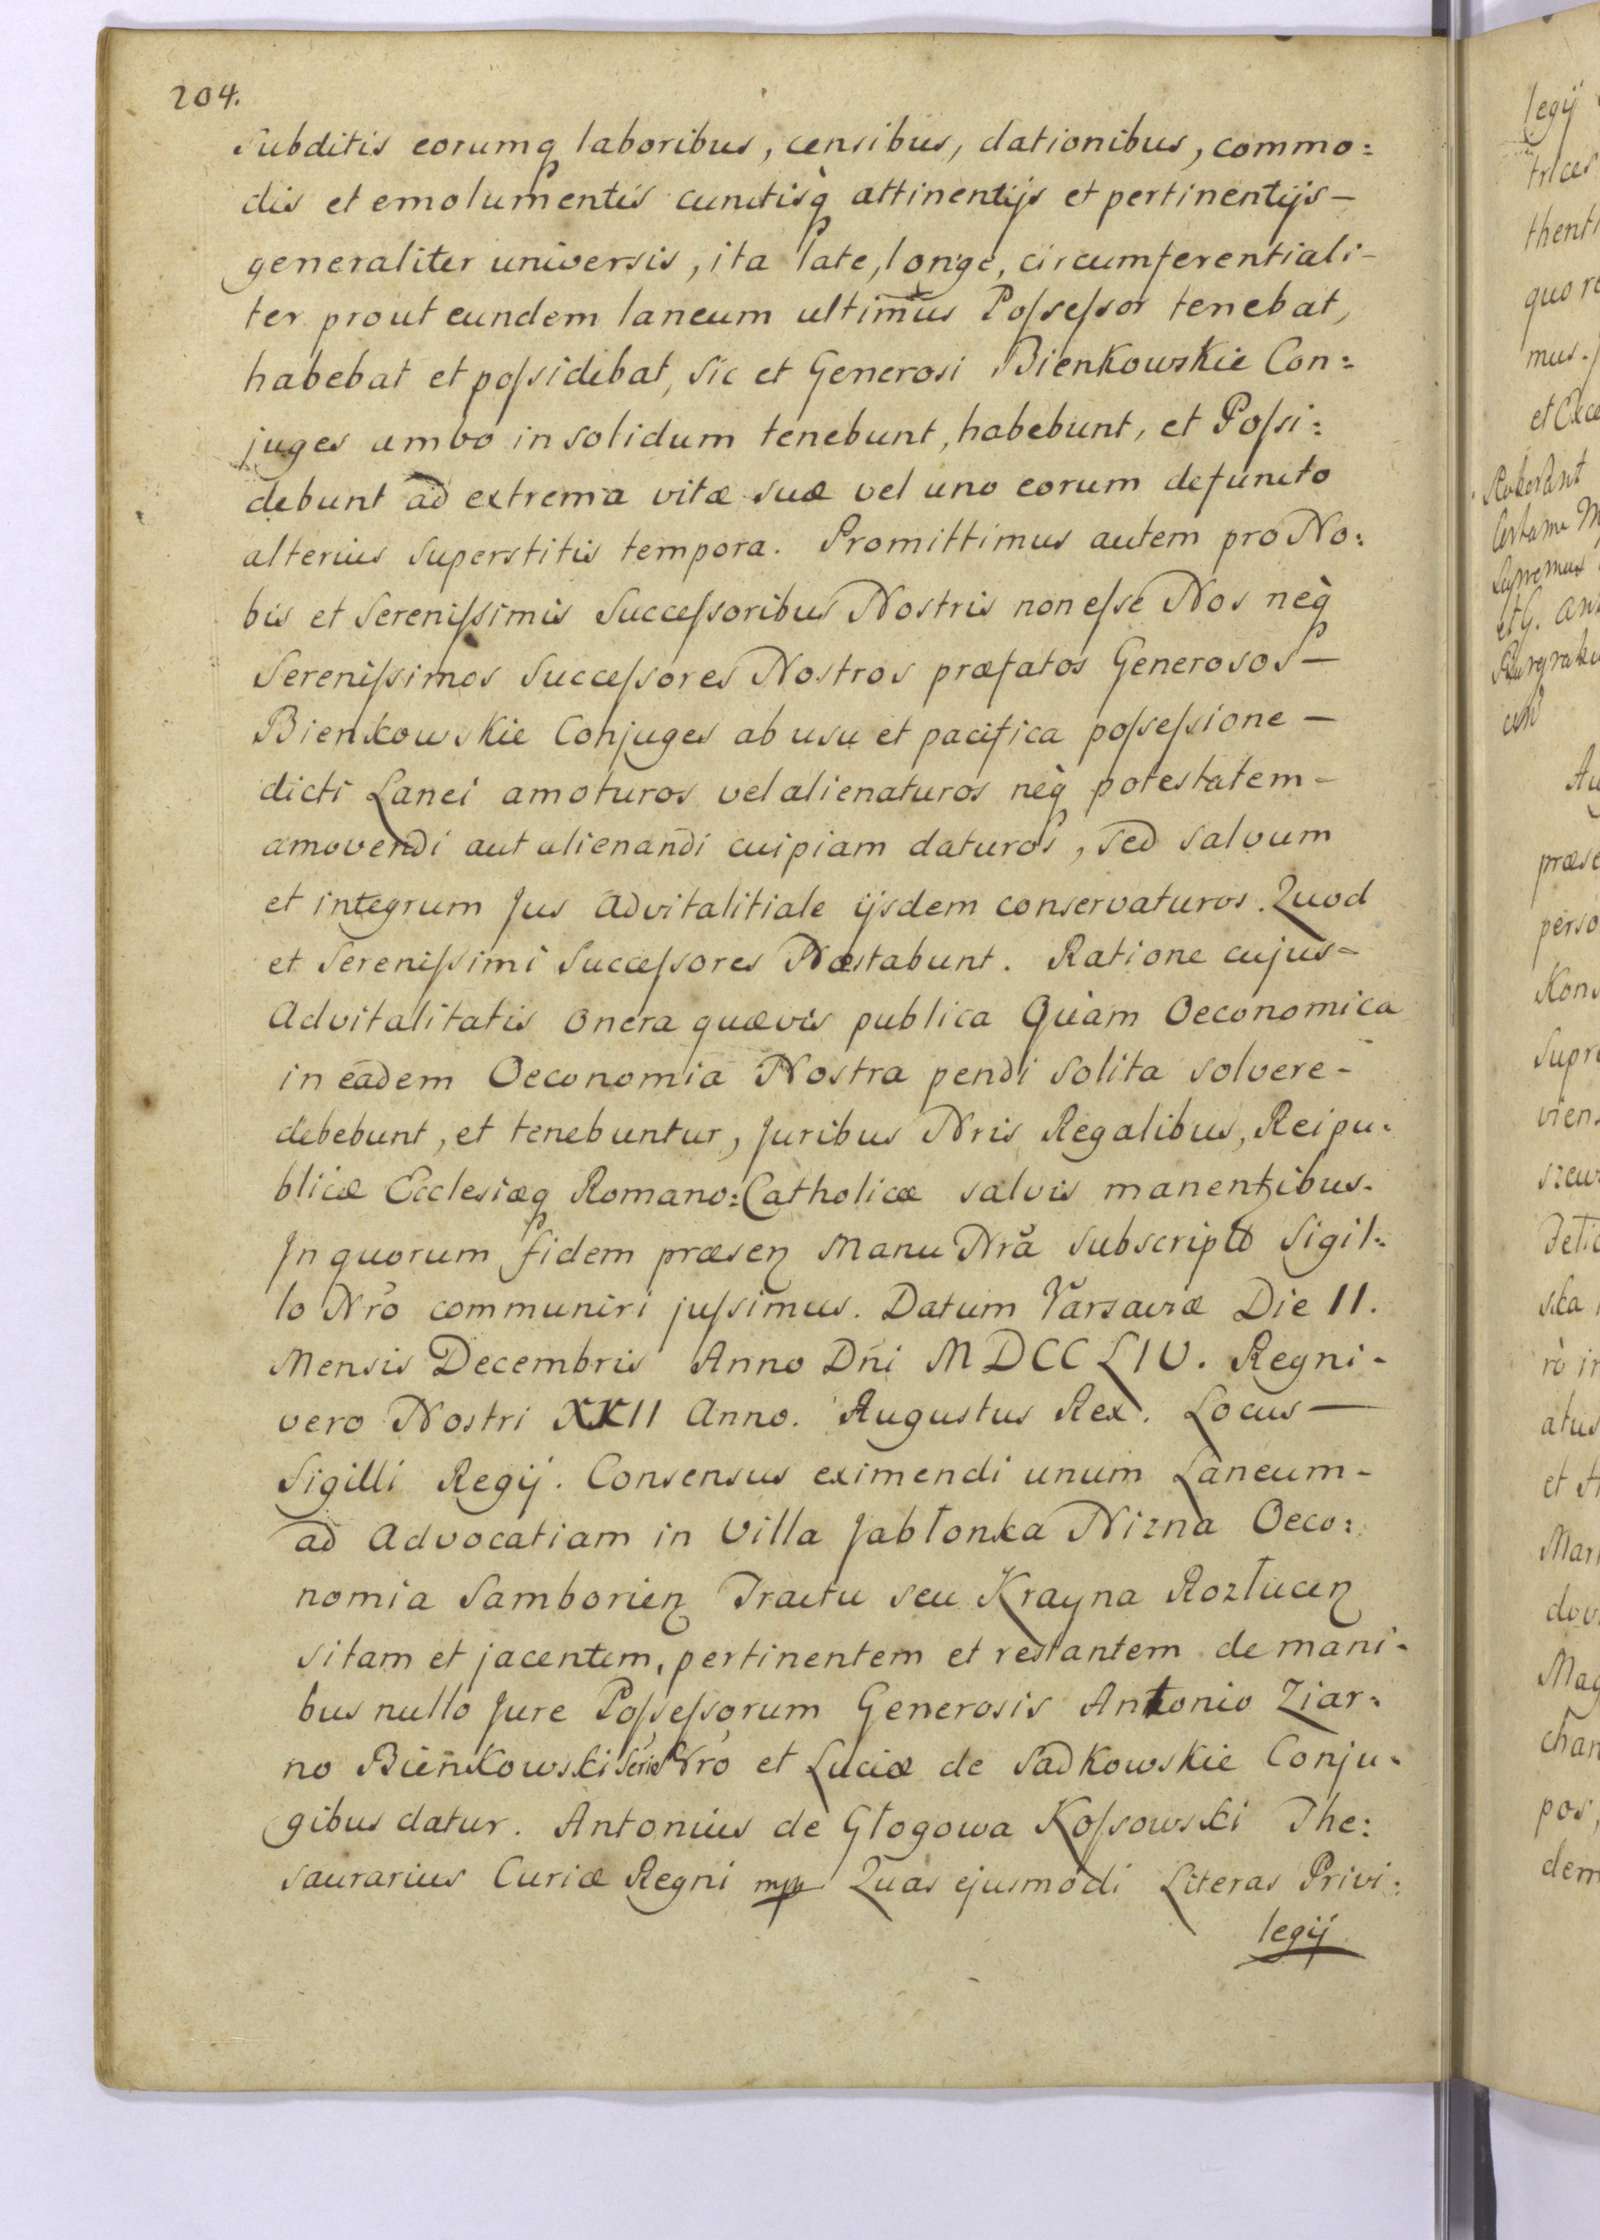 204.
Subditis eorumq laboribus, censibus, dationibus, commo:
dis et emolumentis cunctisq̀ attinentijs et pertinentijs —
generaliter universis, ita late, longe, circumferentiali-
ter prout eundem laneum ultimus Poſseſsor tenebat,
habebat et poſsidebat, sic et Generosi Bienkowskie Con:
juges ambo in solidum tenebunt, habebunt, et Poſsi:
debunt ad extrema vitæ suæ vel uno eorum defuncto
alterius superstitis tempora. Promittimus autem pro No:
bis et Sereniſsimis Succeſsoribus Nostris non eſse Nos neq̀
Sereniſsimos Succeſsores Nostros præfatos Generosos —
Bienkowskie Conjuges ab usu et pacifica poſseſsione —
dicti Lanei amoturos vel alienaturos neq̀ potestatem -
amovendi aut alienandi cuipiam daturos, sed salvum
et integrum Jus Advitalitiale ijsdem conservaturos. Quod
et Sereniſsimi Succeſsores Næstabunt. Ratione cujus -
Advitalitatis onera quævis publica Quàm Oeconomica
in eadem Oeconomia Nostra pendi solita solvere -
debebunt, et tenebuntur, Juribus Nris Regalibus, Reipu-
blicæ Ecclesiæq Romano=Catholicæ salvis manentibus.
In quorum fidem præsen Manu Nrã subscripto Sigil:
lo Nrõ communiri juſsimus. Datum Varsaviæ Die 11.
Mensis Decembris Anno Dñi MDCCLIV. Regni -
vero Nostri XXII Anno. Augustus Rex. Locus —
Sigilli Regij. Consensus eximendi unum Laneum -
ad Advocatiam in Villa Jabłonka Nizna Oeco:
nomia Samborien Tractu seu Krayna Rozłucen
sitam et jacentem, pertinentem et restantem de mani-
bus nullo Jure Poſseſsorum Generosis Antonio Ziar:
no Bieńkowski Nrõ et Luciæ de Sadkowskie Conju-
gibus datur. Antonius de Głogowa Koſsowski The:
saurarius Curiæ Regni mp Quas ejusmodi Literas Privi:
legij
legij
thent
mus.
præs
perso
Kons
Supr
viens
atus
et
chan
pos,
dem